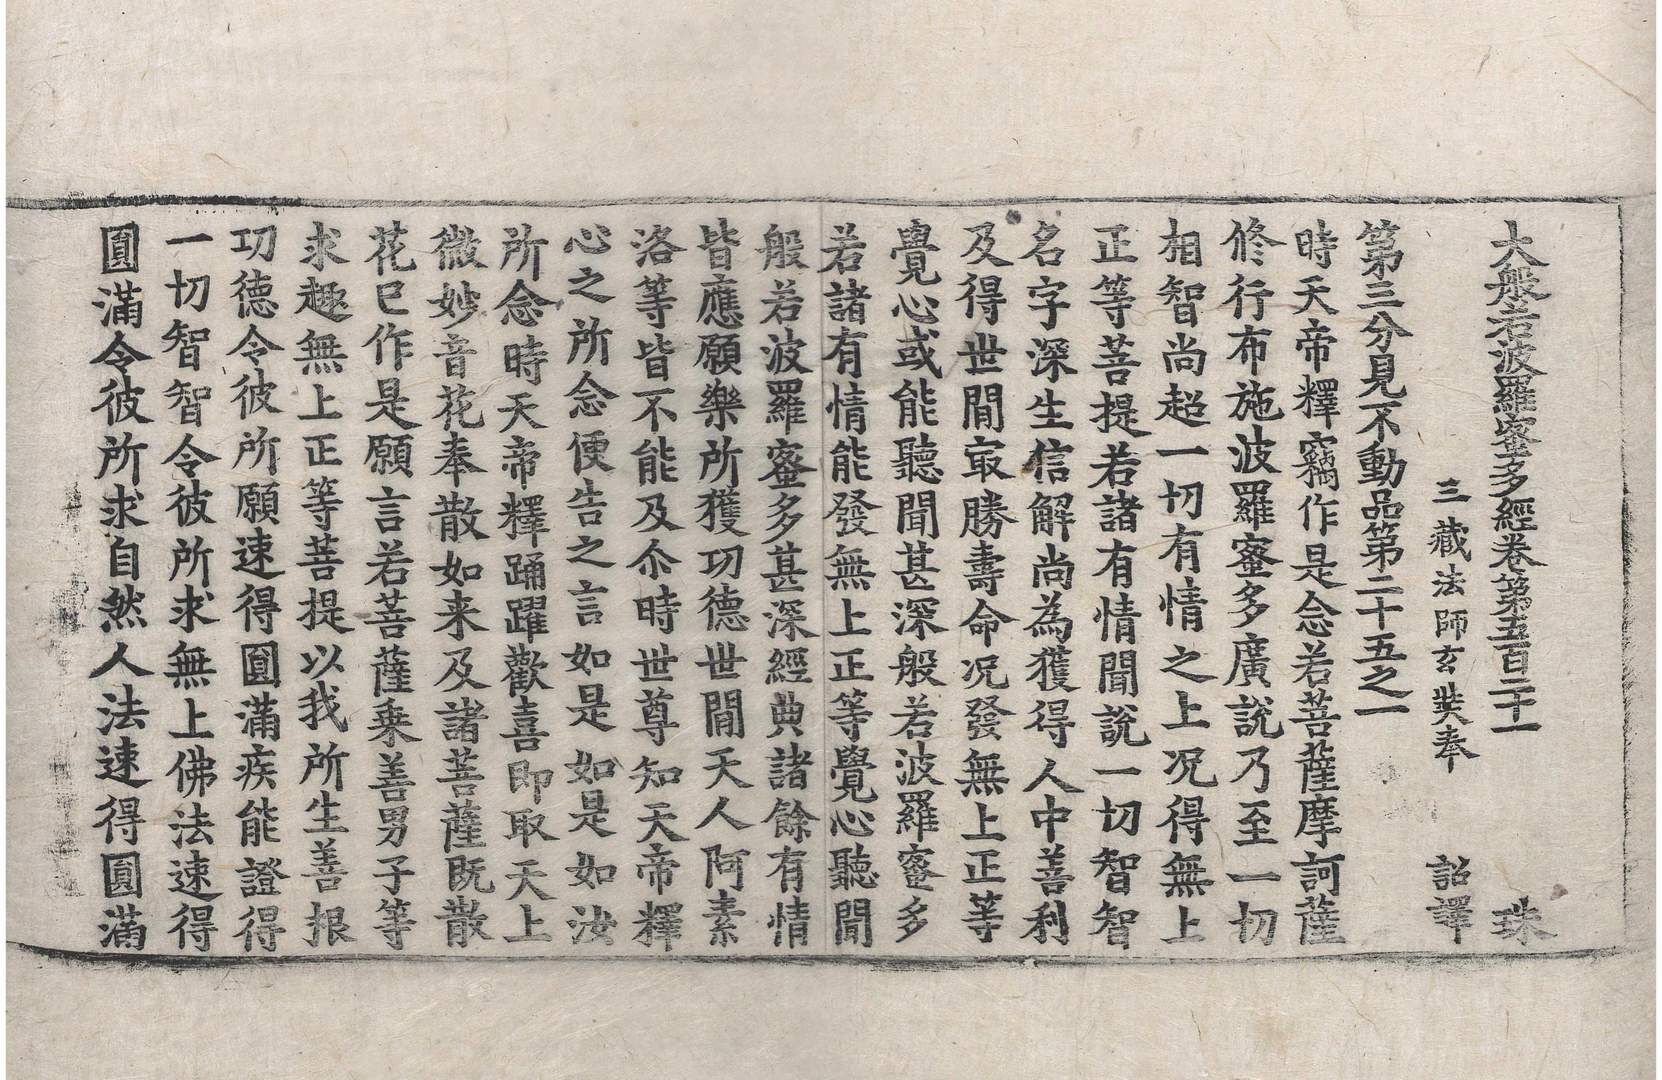 大般若波羅蜜多經卷第五百二十一 珠
三藏法師玄奘奉 詔譯
第三分見不動品第二十五之一
時天帝釋竊作是念若菩薩摩訶薩
修行布施波羅蜜多廣說乃至一切
相智尚超一切有情之上况得無上
正等菩提若諸有情聞說一切智智
名字深生信解尚為獲得人中善利
及得世間最勝壽命况發無上正等
覺心或能聽聞甚深般若波羅蜜多
若諸有情能發無上正等覺心聽聞
般若波羅蜜多甚深經典諸餘有情
皆應願樂所獲功德世間天人阿素
洛等皆不能及尒時世尊知天帝釋
心之所念便告之言如是如是如汝
所念時天帝釋踊躍歡喜即取天上
微妙音花奉散如来及諸菩薩既散
花已作是願言若菩薩乘善男子等
求趣無上正等菩提以我所生善根
功德令彼所願速得圓滿疾能證得
一切智智令彼所求無上佛法速得
圓滿令彼所求自然人法速得圓滿